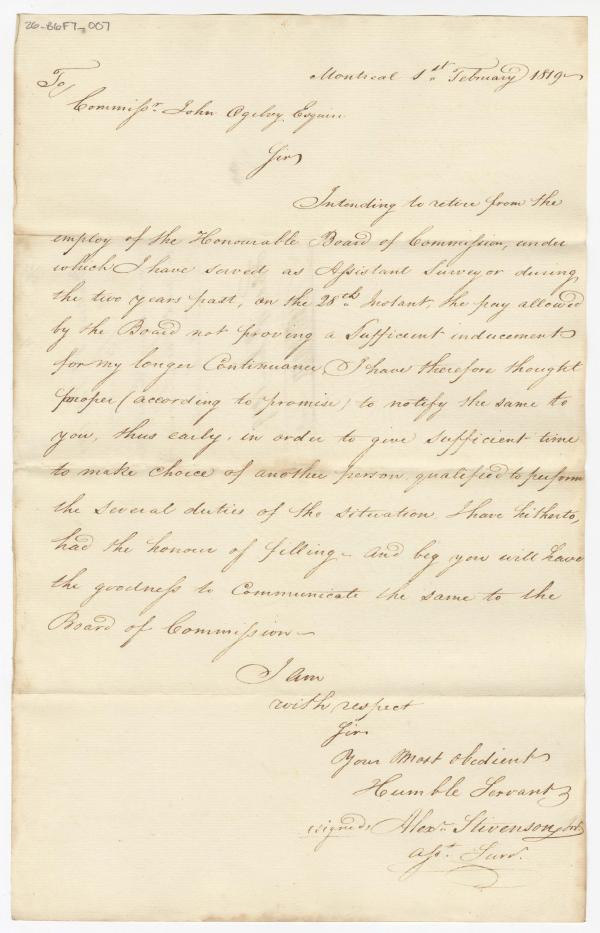 26-B6F7-007
Montreal 1st February 1819
To
Commissr. John Ogilvy Esquire
Sir
Intending to retire from the
employ of the Honourable Board of Commission, under
which I have served as Assistant Surveyor during
the two years past, on the 28th Instant, the pay allowed
by the Board not proving a Sufficient inducement
for my longer Continuance, I have therefore thought
proper (according to promise) to notify the same to
you, thus early, in order to give sufficient time
to make choice of another person qualified to perform
the several duties of the situation I have hitherto,
had the honour of filling - and beg you will have
the goodness to Communicate the same to the
Board of Commission -
I am
with respect
Sir
Your Most obedient
Humble Servant
(signed) Alexr. Stivenson
asst. Survr.